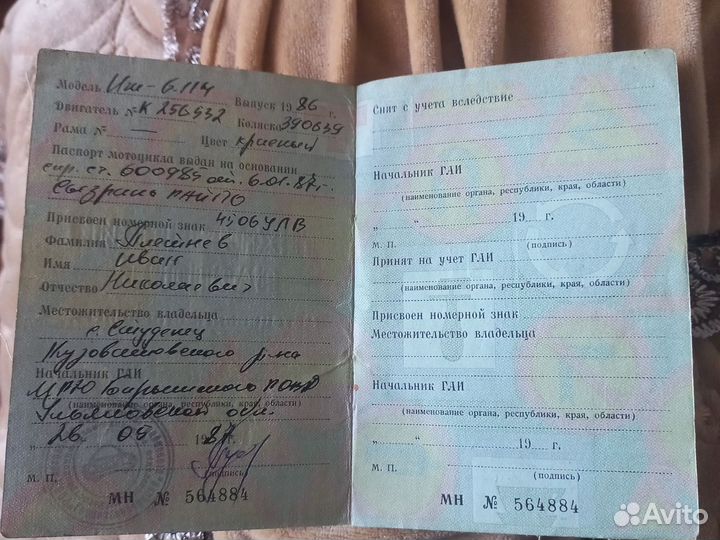 Модель Иж-6.114
Выпуск 1986 г.
Двигатель № К 256932
Коляска 390639
Рама № —
Цвет красный
Паспорт мотоцикла выдан на основании
спр. ст. 600989 от 6.01.87г.
Сызрань
Присвоен номерной знак 4506УЛВ
Фамилия Плешнев
Имя Иван
Отчество Николаевич
Местожительство владельца
с. Студенец
Кузоватовского р-на
Начальник ГАИ
(наименование органа, республики, края, области)
Ульяновской обл.
„ 26 " 09 1987г.
М. П.
(подпись)
МН № 564884
Снят с учета вследствие
Начальник ГАИ
(наименование органа, республики, края, области)
„ " 19 г.
М. П.
(подпись)
Принят на учет ГАИ
(наименование органа, республики, края, области)
Присвоен номерной знак
Местожительство владельца
Начальник ГАИ
(наименование органа, республики, края, области)
„ " 19 г.
М. П.
(подпись)
МН № 564884
Avito